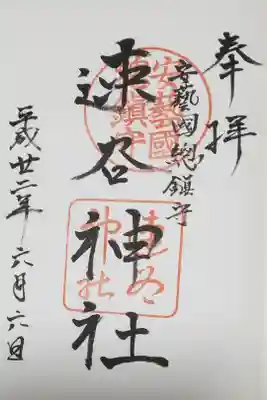 奉拝
安藝國總鎮守
速谷神社
平成廿二年六月六日
安藝國
鎮守
速谷
神社